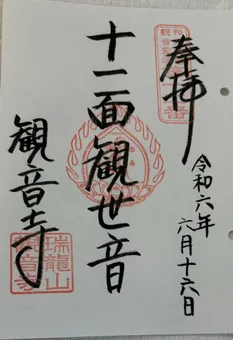 奉拝
令和六年
六月十六日
十一面観世音
観音寺
瑞龍山